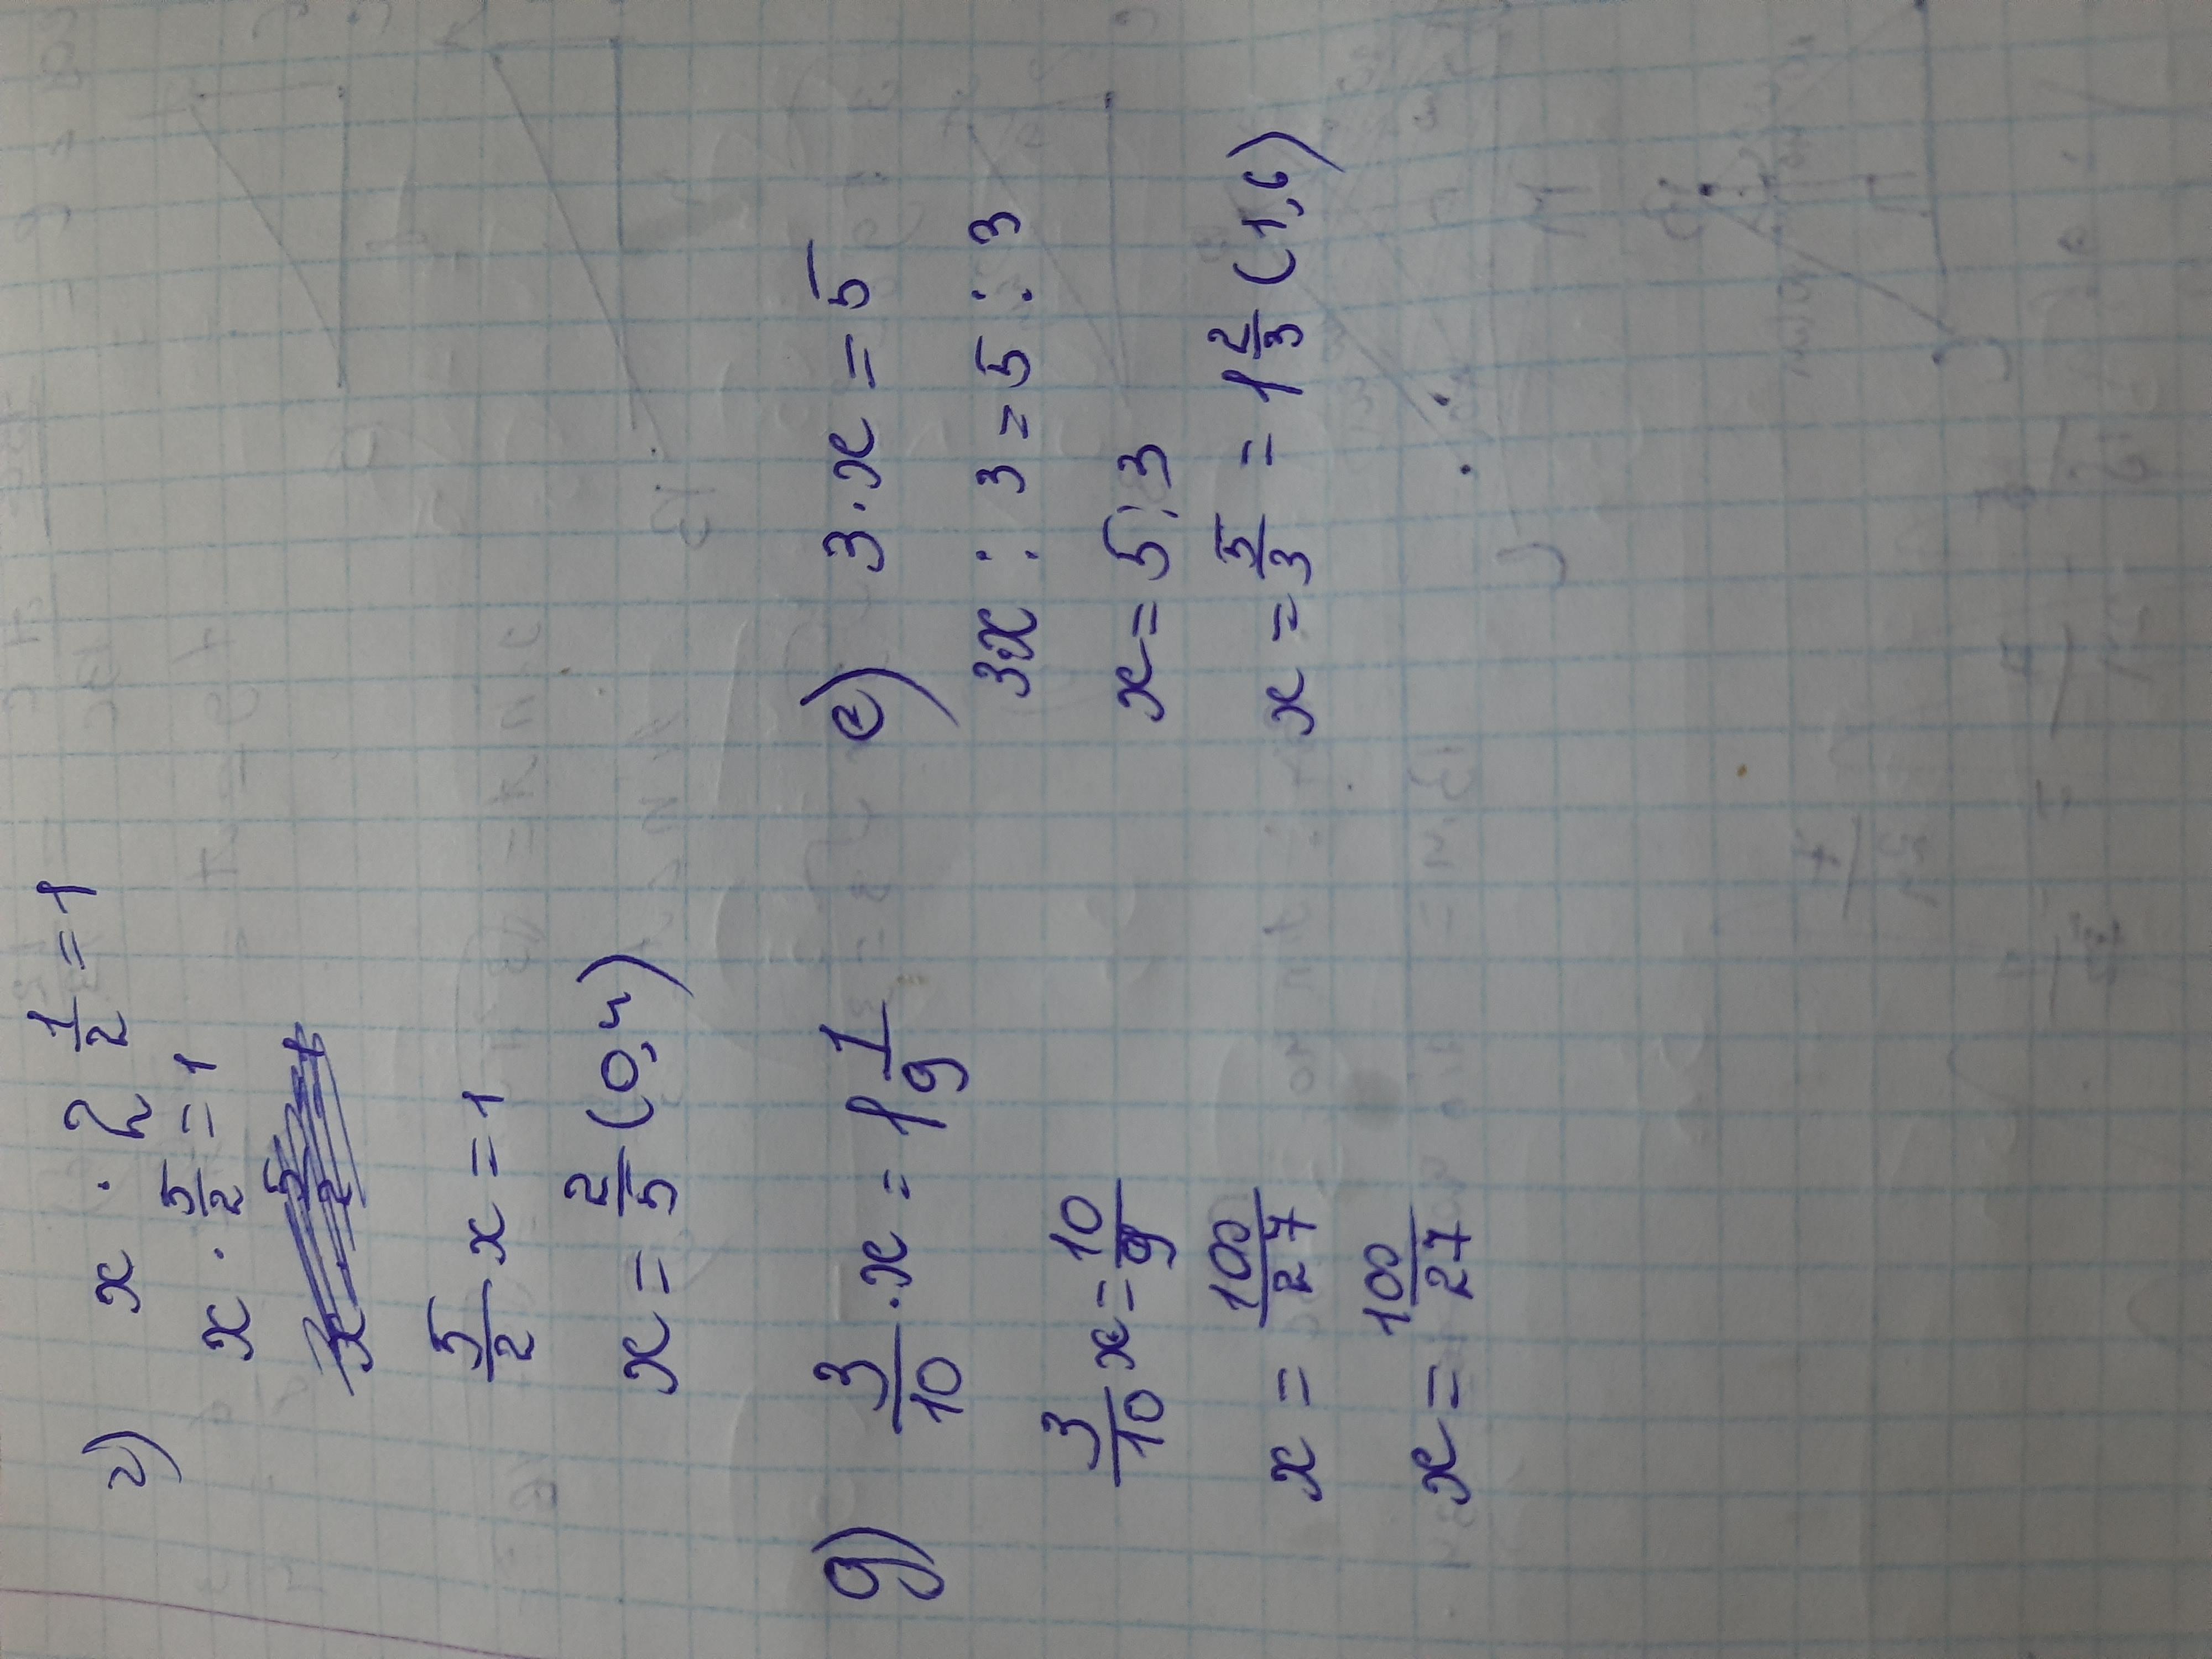 г) x · 2 1/2 = 1
x · 5/2 = 1
5/2 x = 1
x = 2/5 (0,4)
д) 3/10 · x = 1 1/9
3/10 x = 10/9
x = 100/27
x = 100/27
е) 3 · x = 5
3x : 3 = 5 : 3
x = 5 : 3
x = 5/3 = 1 2/3 (1,6)